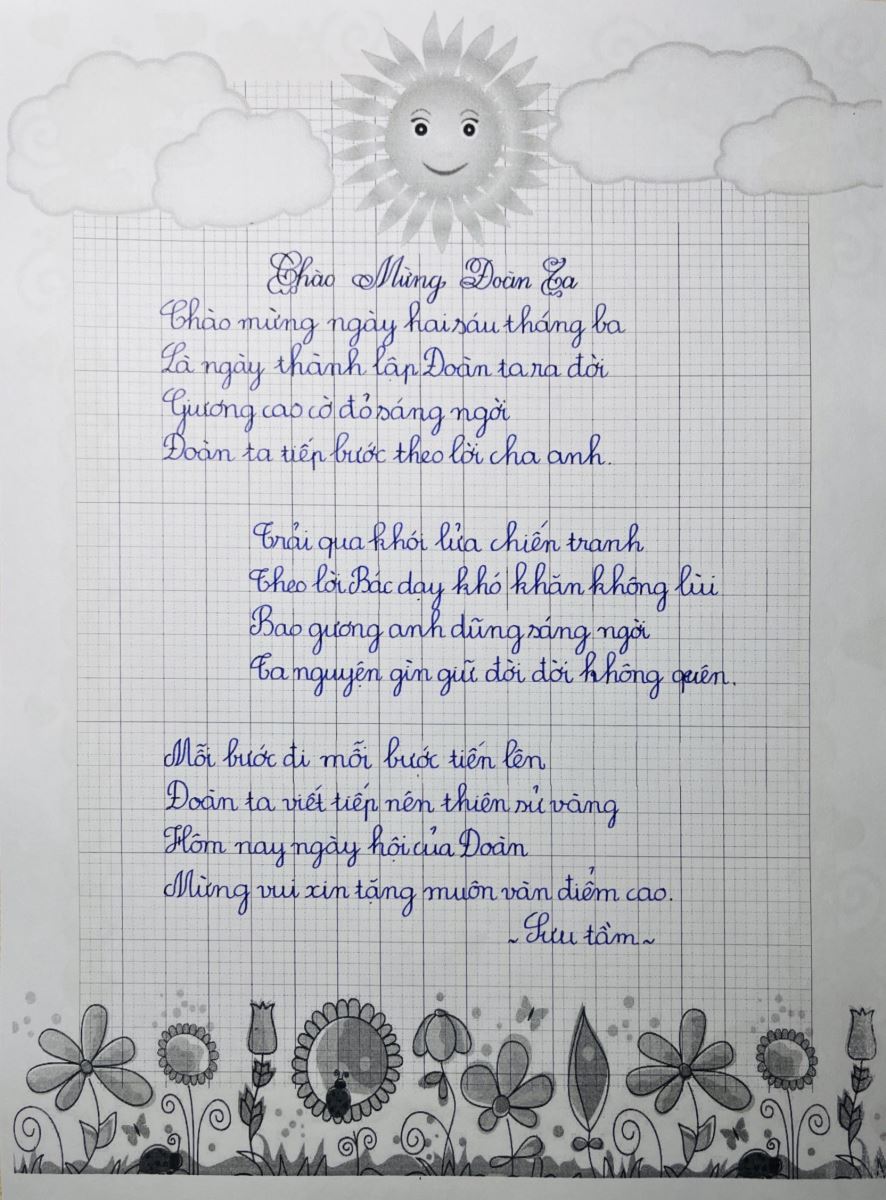 Chào Mừng Đoàn Ta
Chào mừng ngày hai sáu tháng ba
Là ngày thành lập Đoàn ta ra đời
Gương cao cờ đỏ sáng ngời
Đoàn ta tiếp bước theo lời cha anh.
Trải qua khói lửa chiến tranh
Theo lời Bác dạy khó khăn không lùi
Bao gương anh dũng sáng ngời
Ta nguyện gìn giữ đời đời không quên.
Mỗi bước đi mỗi bước tiến lên
Đoàn ta viết tiếp nên thiên sử vàng
Hôm nay ngày hội của Đoàn
Mừng vui xin tặng muôn vàn điểm cao.
~Sưu tầm~